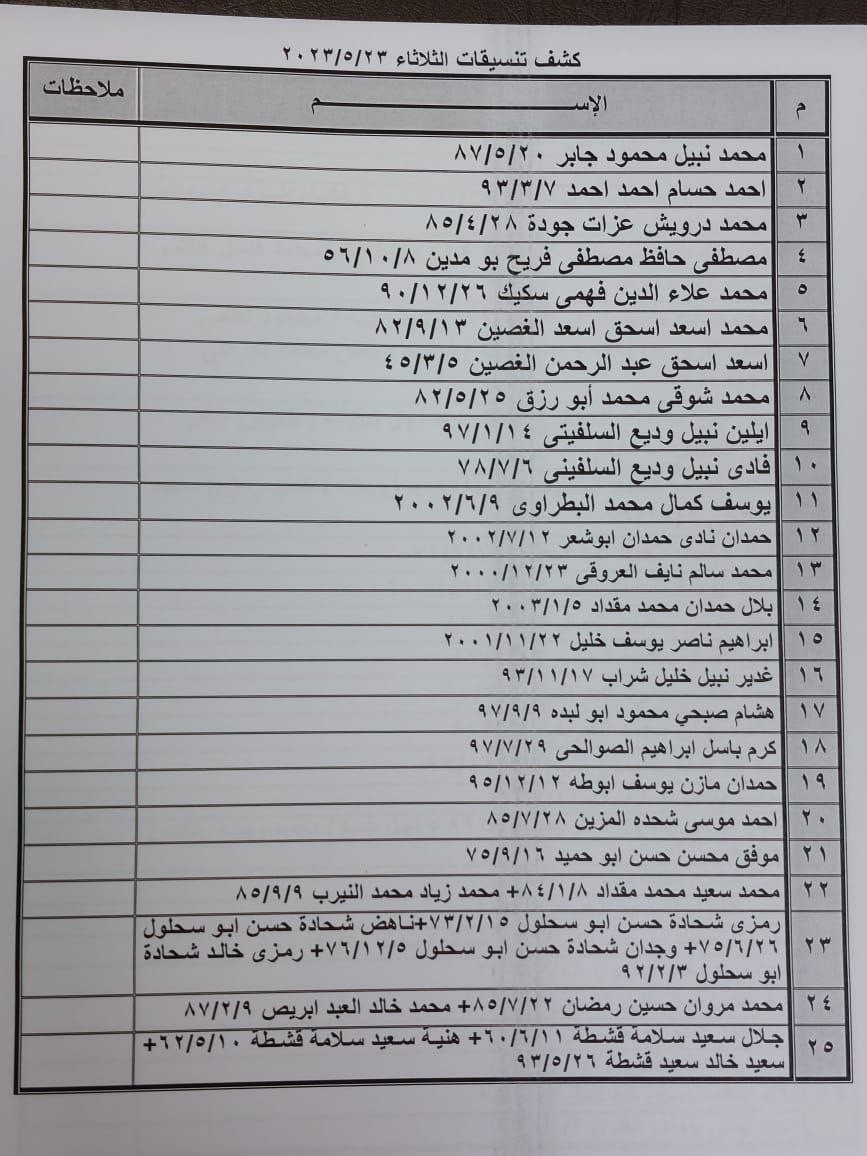 كشف تنسيقات الثلاثاء ٢٠٢٣/٥/٢٣
م الإســـــــــم ملاحظات
١ محمد نبيل محمود جابر ٨٧/٥/٢٠
٢ احمد حسام احمد احمد ٩٣/٣/٧
٣ محمد درويش عزات جودة ٨٥/٤/٢٨
٤ مصطفى حافظ مصطفى فريح بو مدين ٥٦/١٠/٨
٥ محمد علاء الدين فهمى سكيك ٩٠/١٢/٢٦
٦ محمد اسعد اسحق اسعد الغصين ٨٢/٩/١٣
٧ اسعد اسحق عبد الرحمن الغصين ٤٥/٣/٥
٨ محمد شوقى محمد أبو رزق ٨٢/٥/٢٥
٩ ايلين نبيل وديع السلفيتى ٩٧/١/١٤
١٠ فادى نبيل وديع السلفينى ٧٨/٧/٦
١١ يوسف كمال محمد البطراوى ٢٠٠٢/٦/٩
١٢ حمدان نادى حمدان ابوشعر ٢٠٠٢/٧/١٢
١٣ محمد سالم نايف العروقى ٢٠٠٠/١٢/٢٣
١٤ بلال حمدان محمد مقداد ٢٠٠٣/١/٥
١٥ ابراهيم ناصر يوسف خليل ٢٠٠١/١١/٢٢
١٦ غدير نبيل خليل شراب ٩٣/١١/١٧
١٧ هشام صبحي محمود ابو لبده ٩٧/٩/٩
١٨ كرم باسل ابراهيم الصوالحى ٩٧/٧/٢٩
١٩ حمدان مازن يوسف ابوطه ٩٥/١٢/١٢
٢٠ احمد موسى شحده المزين ٨٥/٧/٢٨
٢١ موفق محسن حسن ابو حميد ٧٥/٩/١٦
٢٢ محمد سعيد محمد مقداد ٨٤/١/٨+ محمد زياد محمد النيرب ٨٥/٩/٩
٢٣ رمزى شحادة حسن ابو سحلول ٧٣/٢/١٥+ناهض شحادة حسن ابو سحلول
٧٥/٦/٢٦+ وجدان شحادة حسن ابو سحلول ٧٦/١٢/٥+ رمزى خالد شحادة
ابو سحلول ٩٢/٢/٣
٢٤ محمد مروان حسين رمضان ٨٥/٧/٢٢+ محمد خالد العبد ابريص ٨٧/٢/٩
٢٥ جلال سعيد سلامة قشطة ٦٠/٦/١١+ هنية سعيد سلامة قشطة ٦٢/٥/١٠+
سعيد خالد سعيد قشطة ٩٣/٥/٢٦